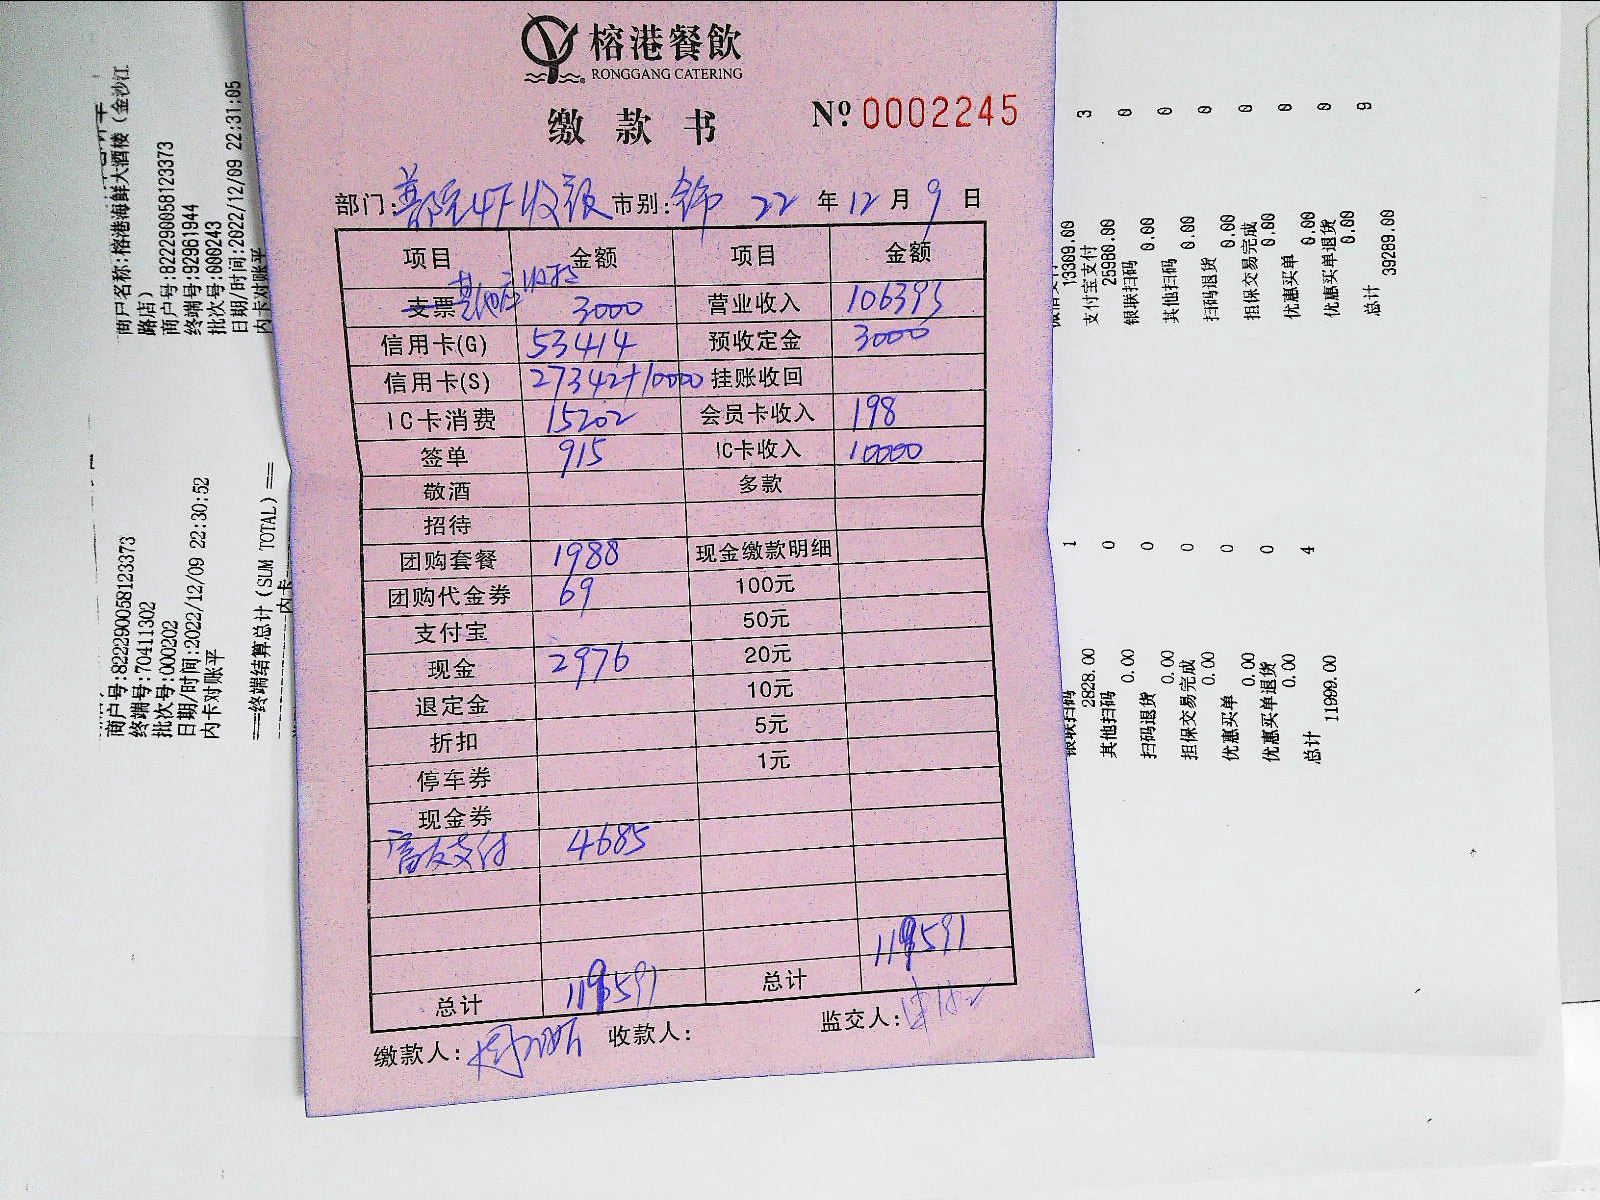 榕港餐飲
RONGGANG CATERING
缴款书 № 0002245
部门: 4F收银 市别: 22 年 12 月 9 日
项目 金额 项目 金额
支票 其他店收款 3000 营业收入 106393
信用卡(G) 53414 预收定金 3000
信用卡(S) 27342+10000 挂账收回
IC卡消费 15202 会员卡收入 198
签单 915 IC卡收入 10000
敬酒 多款
招待
团购套餐 1988 现金缴款明细
团购代金券 69 100元
支付宝 50元
现金 2976 20元
退定金 10元
折扣 5元
停车券 1元
现金券
富友支付 4685
总计 119591 总计 119591
缴款人: 收款人: 监交人:
商户名称:榕港海鲜大酒楼（金沙江
路店）
商户号:822290058123373
终端号:92961944
批次号:000243
日期/时间:2022/12/09 22:31:05
内卡对账平
3
13309.00
支付宝支付 0
25980.00
银联扫码 0
0.00
其他扫码 0
0.00
扫码退货 0
0.00
担保交易完成 0
0.00
优惠买单 0
0.00
优惠买单退货
0.00
总计 9
39289.00
商户号:822290058123373
终端号:70411302
批次号:000202
日期/时间:2022/12/09 22:30:52
内卡对账平
===终端结算总计 (SUM TOTAL) ==
内卡
银联扫码 1
2828.00
其他扫码 0
0.00
扫码退货 0
0.00
担保交易完成 0
0.00
优惠买单 0
0.00
优惠买单退货 0
0.00
总计 4
11999.00